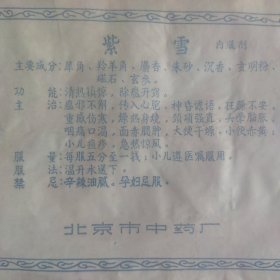 紫 雪 内服剂
主要成分：犀角、羚羊角、麝香、朱砂、沉香、玄明粉、
磁石、玄参。
功 能：清热镇惊，除瘟开窍。
主 治：瘟邪不解，传入心胞，神昏谵语，狂躁不安，
重感伤寒，燥热身烧，颈项强直，头晕脑胀，
咽痛口渴，面赤腮肿，大便干燥，小便赤黄，
小儿痘疹，急热惊风。
服 量：每服五分至一钱，小儿遵医嘱服用。
服 法：温开水送下。
禁 忌：辛辣油腻。孕妇忌服。
北京市中药厂